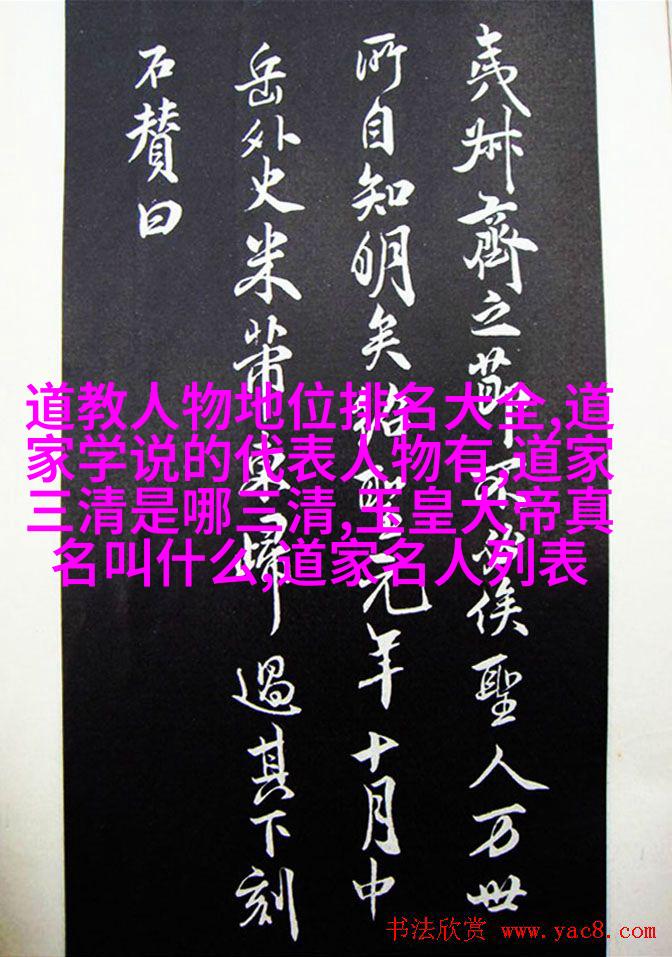 夷叔齊之莭不必俟聖人万世
所自知明矣紹聖元年十月中
岳外史米芾東歸過其下刻
石賛曰
道教人物地位排名大全,道
家学说的代表人物有,道家
三清是哪三清,玉皇大帝真
名叫什么,道家名人列表
书法欣赏 www.yac8.com